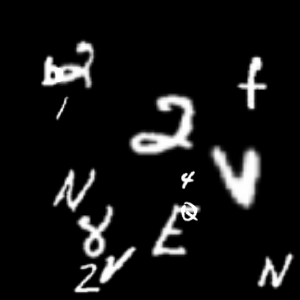 b2 f
1
2
4 V
N Q
8 E
2 V N